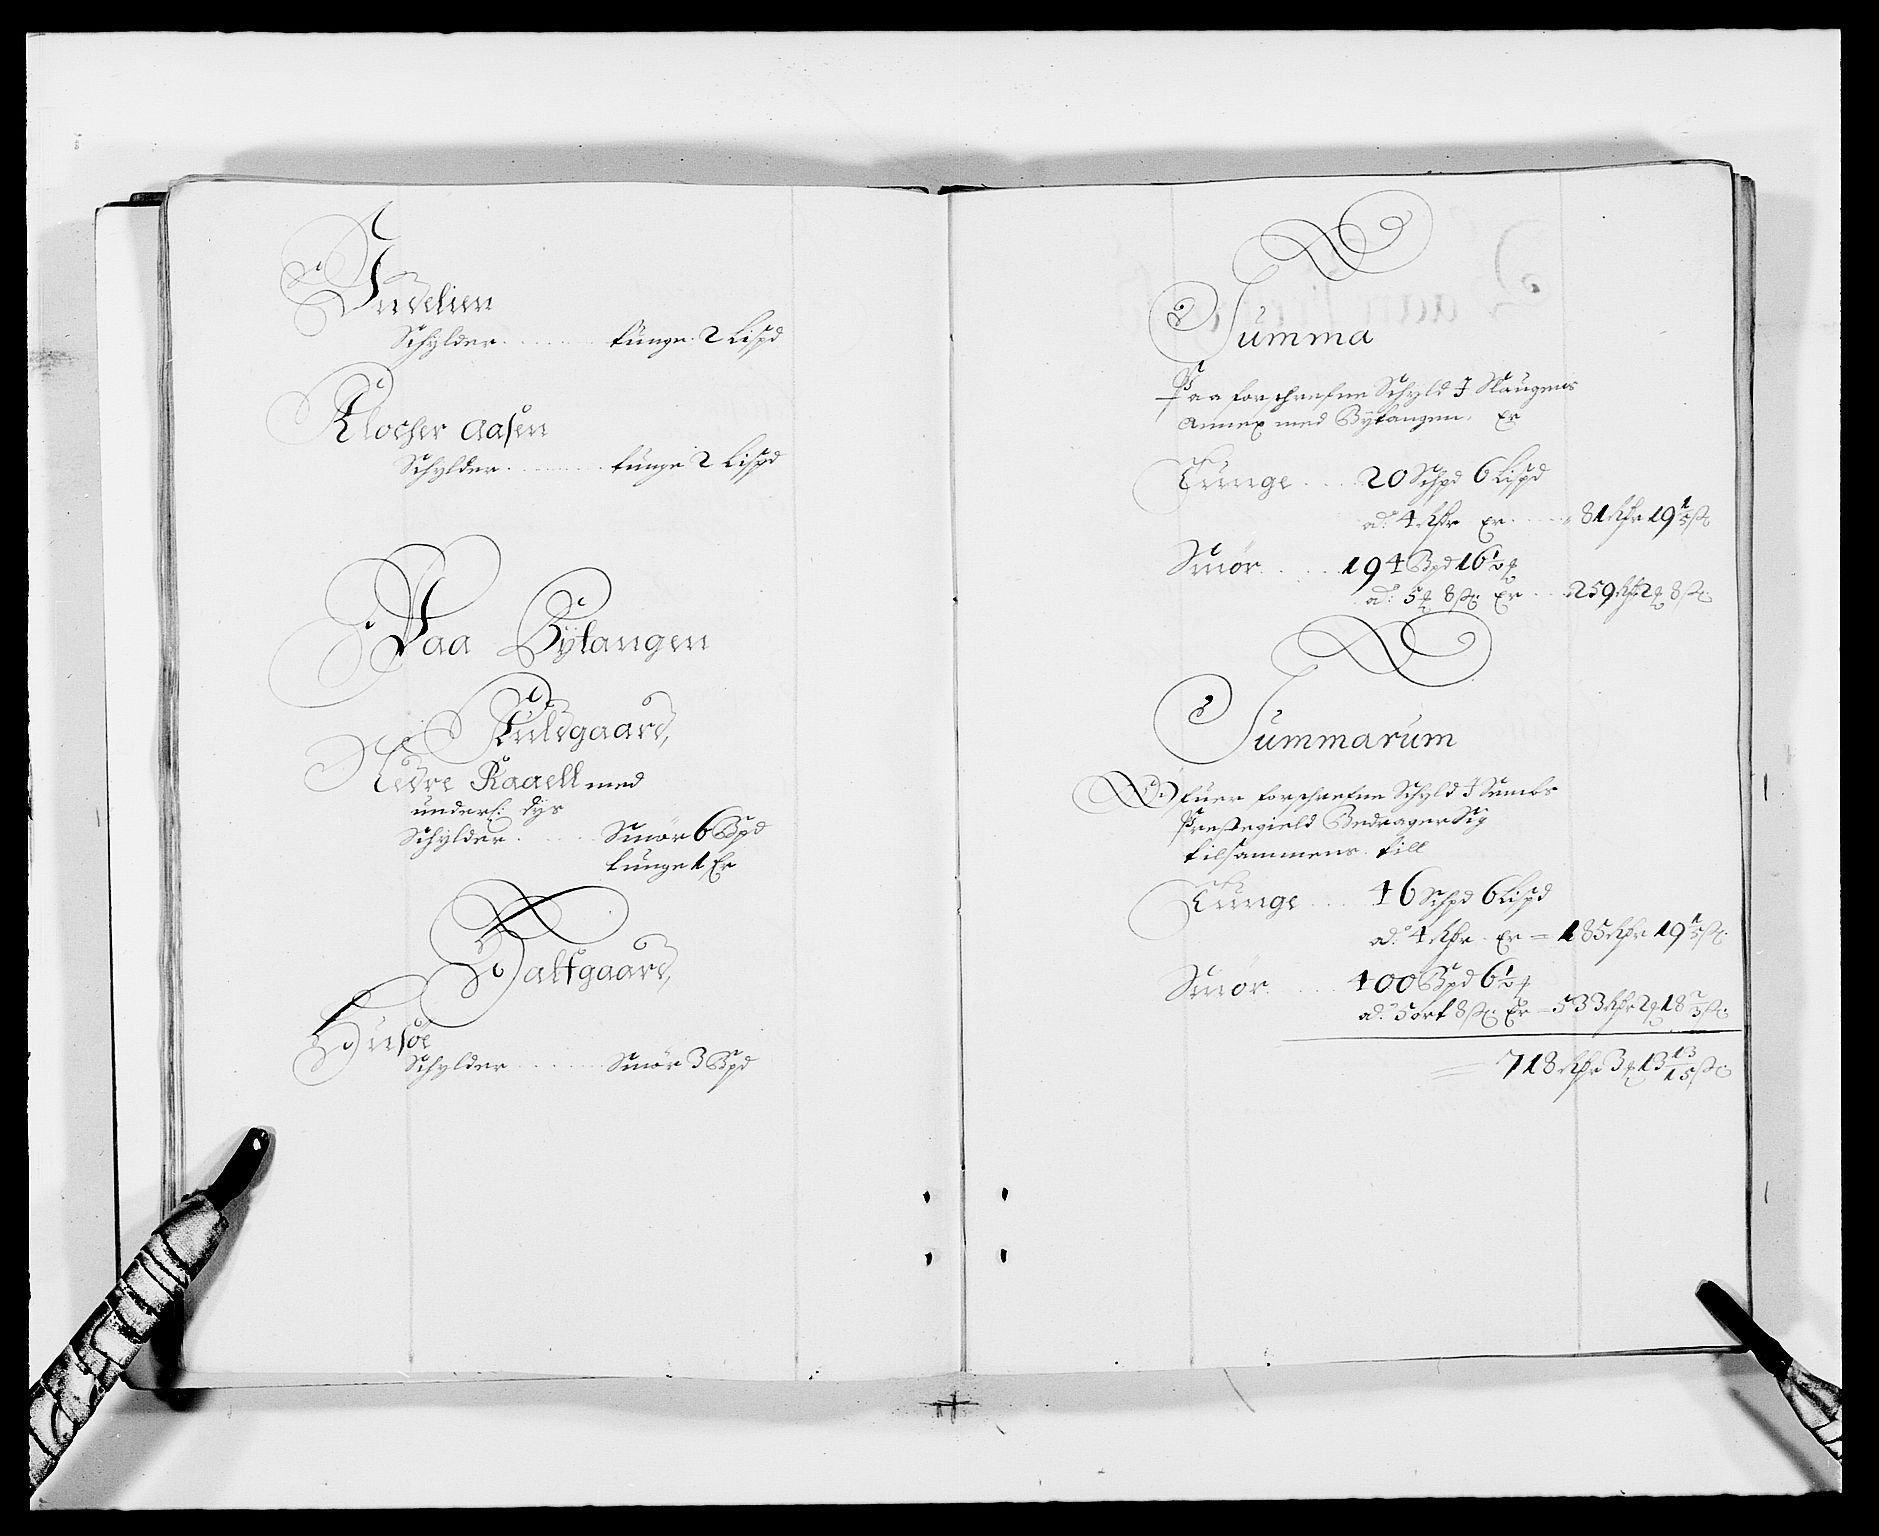 Indelien
Schylder ..... tunge 2 Lispd
Klocher Aasen
Schylder ..... tunge 2 Lispd
Paa Bÿtangen
Fuldgaard,
Nedre Raaell med
underl: dÿs
Schylder ..... Smör 6 Bpd
tunge 1 Er
Halfgaard,
Husöe
Schylder ..... Smör 3 Bpd
Summa
Paa forschrefne Schyld I Skaugens
Annex med Bÿtangen. Er
Tunge .... 20 Schpd 6 Lispd
ad: 4 Rdr Er .... 81 Rdr 19 1/5 ß
Smör .... 194 Bpd 16 1/2
ad: 5 8 ß Er .... 259 Rdr 2 8 ß
Summarum
Ofuer forschrefne Schyld I Sembs
Prestegield Bedrager Sig
tilsammens till
Tunge .... 46 Schpd 6 Lispd
ad: 4 Rdr Er = 185 Rdr 19 1/5 ß
Smör .... 400 Bpd 6 1/2
ad: 5 ort 8 ß Er = 533 Rdr 2 18 2/3 ß
718 Rdr 3 13 13/15 ß